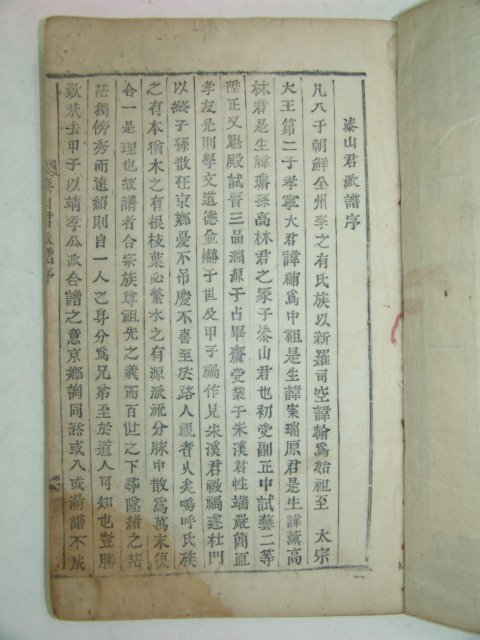 泰山君派譜序
凡入于朝鮮全州李之有氏族以新羅司空諱翰爲始祖至 太宗
大王第二子孝寧大君諱補爲中祖是生諱案瑞原君是生諱薰高
林君是生諱 孫高林君之冢子泰山君也初受副正中試藝二等
陞正又魁殿試晋三品淵源于占畢齋受業于朱溪君性端嚴簡直
孝友是則學文道德金 于世及甲子禍作見朱溪君被禍遂杜門
以終子孫散在京鄕憂不吊慶不喜至於路人視者久矣嗚呼氏族
之有本猶木之有根枝葉必繁水之有源派流分脉中散爲萬末復
合一是理也故譜者合宗族尊祖先之義而百世之下尋墜緒之茫
茫獨傍夯而遠紹則自一人之身分爲兄弟至於道人可知也豈勝
歎哉去甲子以靖孝公派合譜之意京鄕詢同 或入或漏譜不成
泰山君派譜序